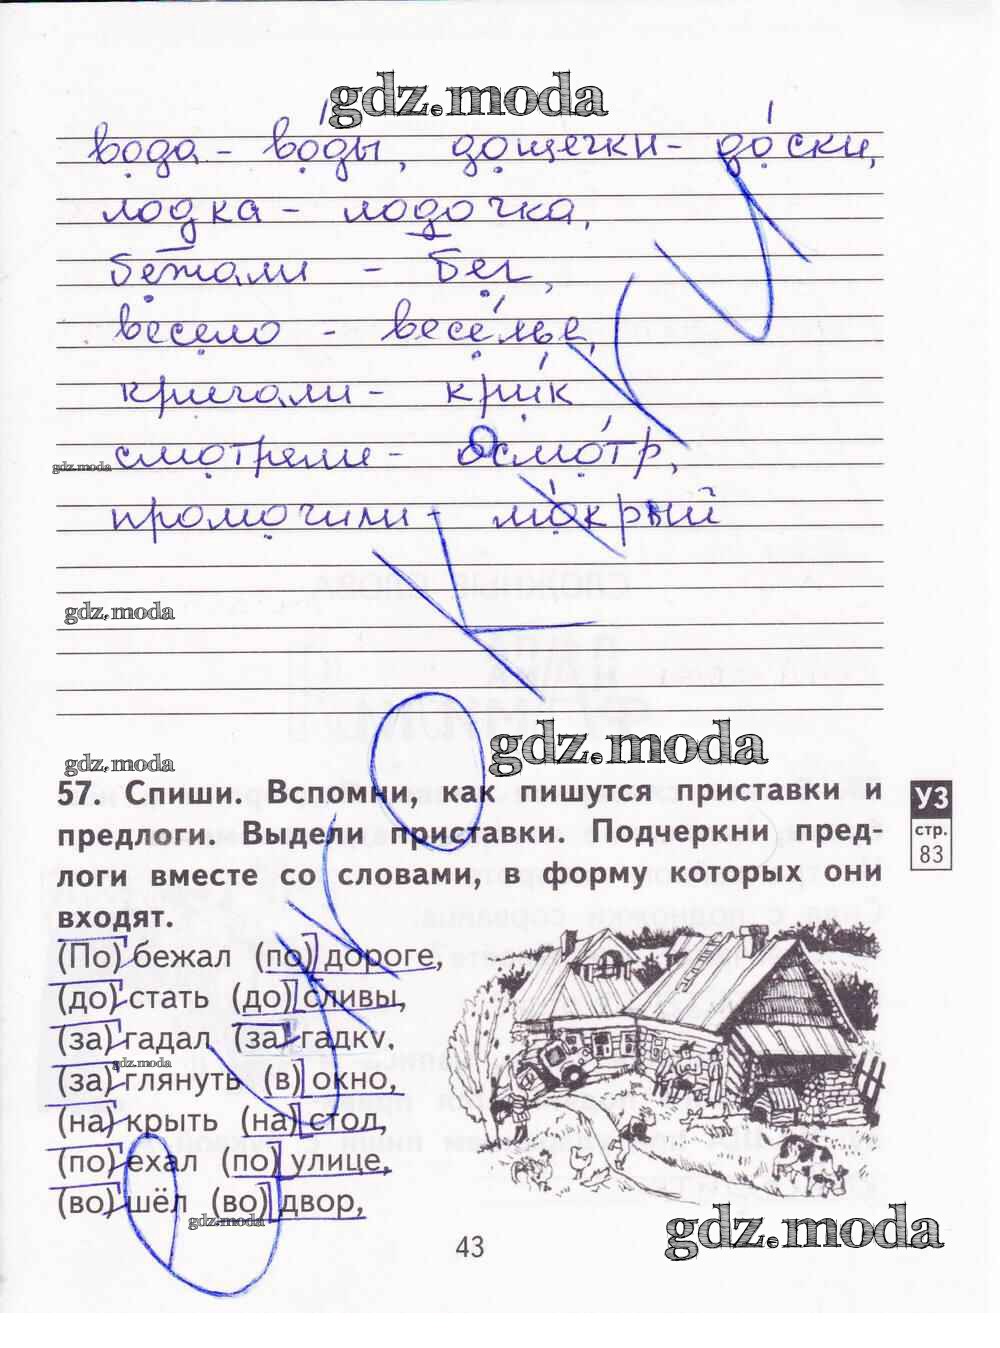 gdz.moda
вода - во́ды, дощечки - до́ски,
лодка - лодочка,
бежали - бег,
весело - весе́лье,
кричали - кри́к
gdz.moda смотрели - осмо́тр,
промочили - мо́крый
gdz.moda
gdz.moda
gdz.moda
57. Спиши. Вспомни, как пишутся приставки и
предлоги. Выдели приставки. Подчеркни пред-
логи вместе со словами, в форму которых они
входят.
УЗ
стр.
83
(По) бежал (по) дороге,
(до) стать (до) сливы,
(за) гадал (за) гадку,
gdz.moda
(за) глянуть (в) окно,
(на) крыть (на) стол,
(по) ехал (по) улице,
(во) шёл (во) двор,
gdz.moda
gdz.moda
43